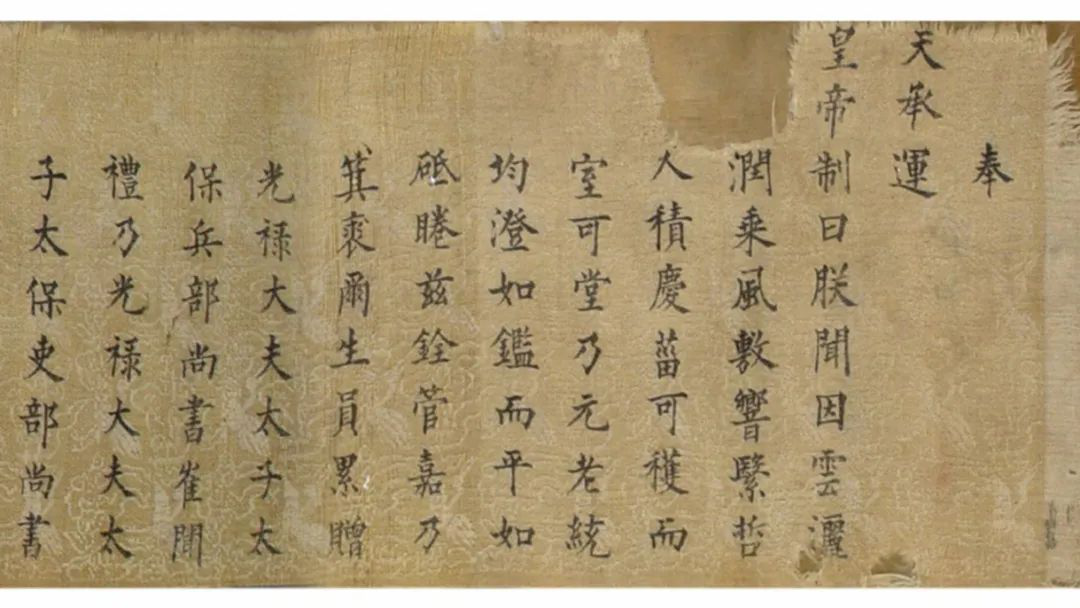 奉
天承運
皇帝制曰朕聞因雲灑
潤乘風敷響繄哲
人積慶菑可穫而
室可堂乃元老統
均澄如鑑而平如
砥睠兹銓管嘉乃
箕裘爾生員累贈
光祿大夫太子太
保兵部尚書崔聞
禮乃光祿大夫太
子太保吏部尚書